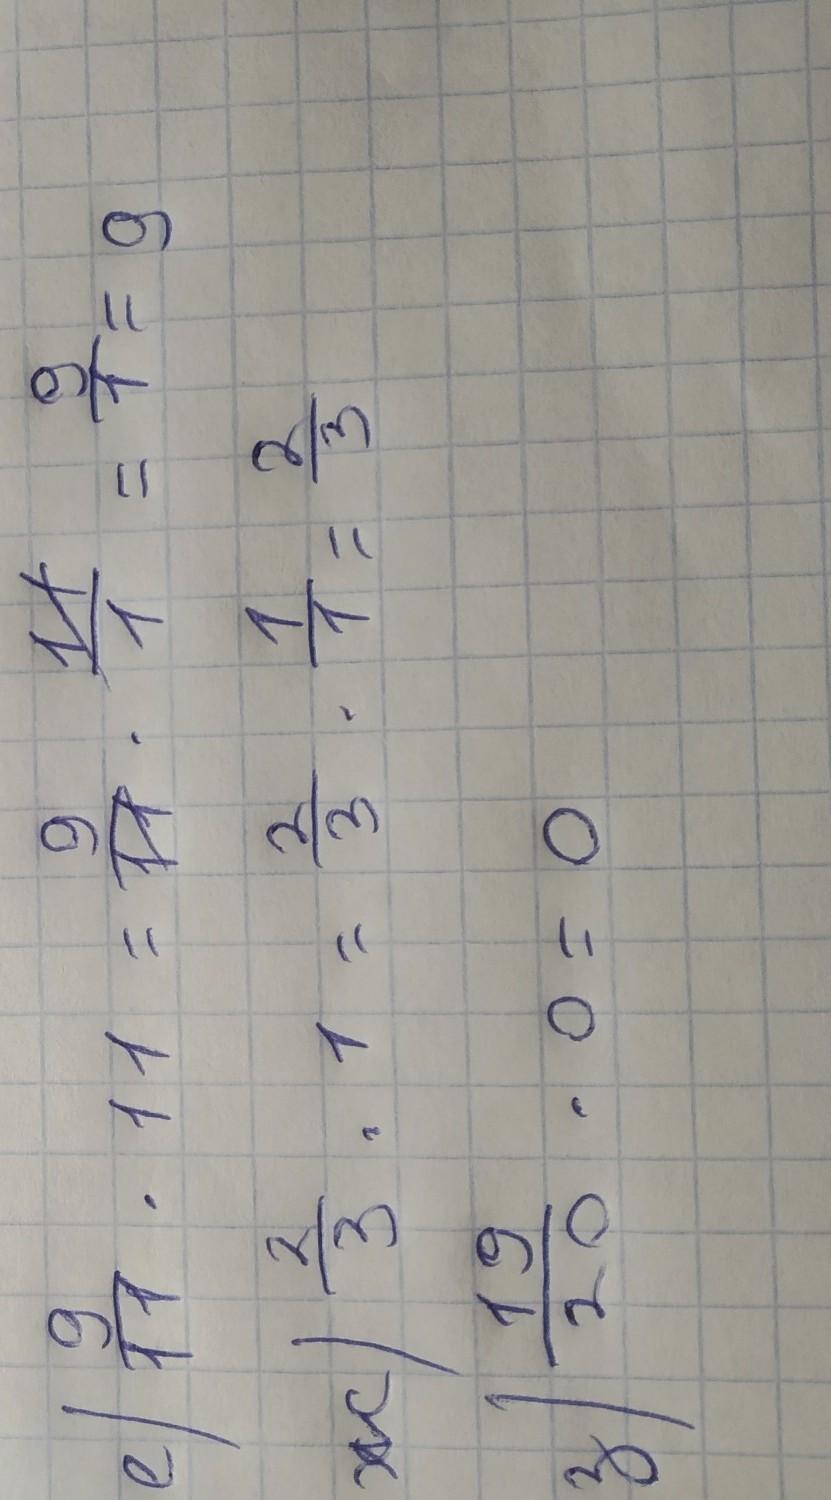 е) 9/11 · 11 = 9/11 · 11/1 = 9/1 = 9
ж) 2/3 · 1 = 2/3 · 1/1 = 2/3
з) 19/20 · 0 = 0